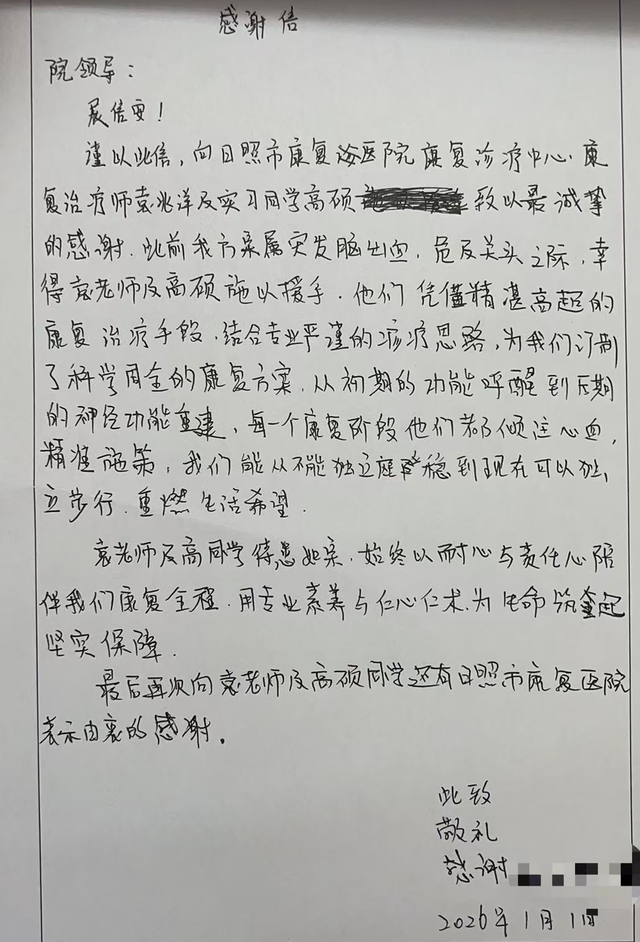 感谢信
院领导：
展信安！
谨以此信，向日照市康复医院康复诊疗中心康
复治疗师袁兆洋及实习同学高硕致以最诚挚
的感谢。此前我方亲属突发脑出血，危及关头之际，幸
得袁老师及高硕施以援手。他们凭借精湛高超的
康复治疗手段，结合专业严谨的诊疗思路，为我们订制
了科学周全的康复方案，从初期的功能呼醒到后期
的神经功能重建，每一个康复阶段他们都倾注心血，
精准施策，我们能从不能独立座稳到现在可以独
立步行，重燃生活希望。
袁老师及高同学待患如亲，始终以耐心与责任心陪
伴我们康复全程，用专业素养与仁心仁术，为生命筑起
坚实保障。
最后再次向袁老师及高硕同学还有日照市康复医院
表示由衷的感谢。
此致
敬礼
感谢
2026年1月1日